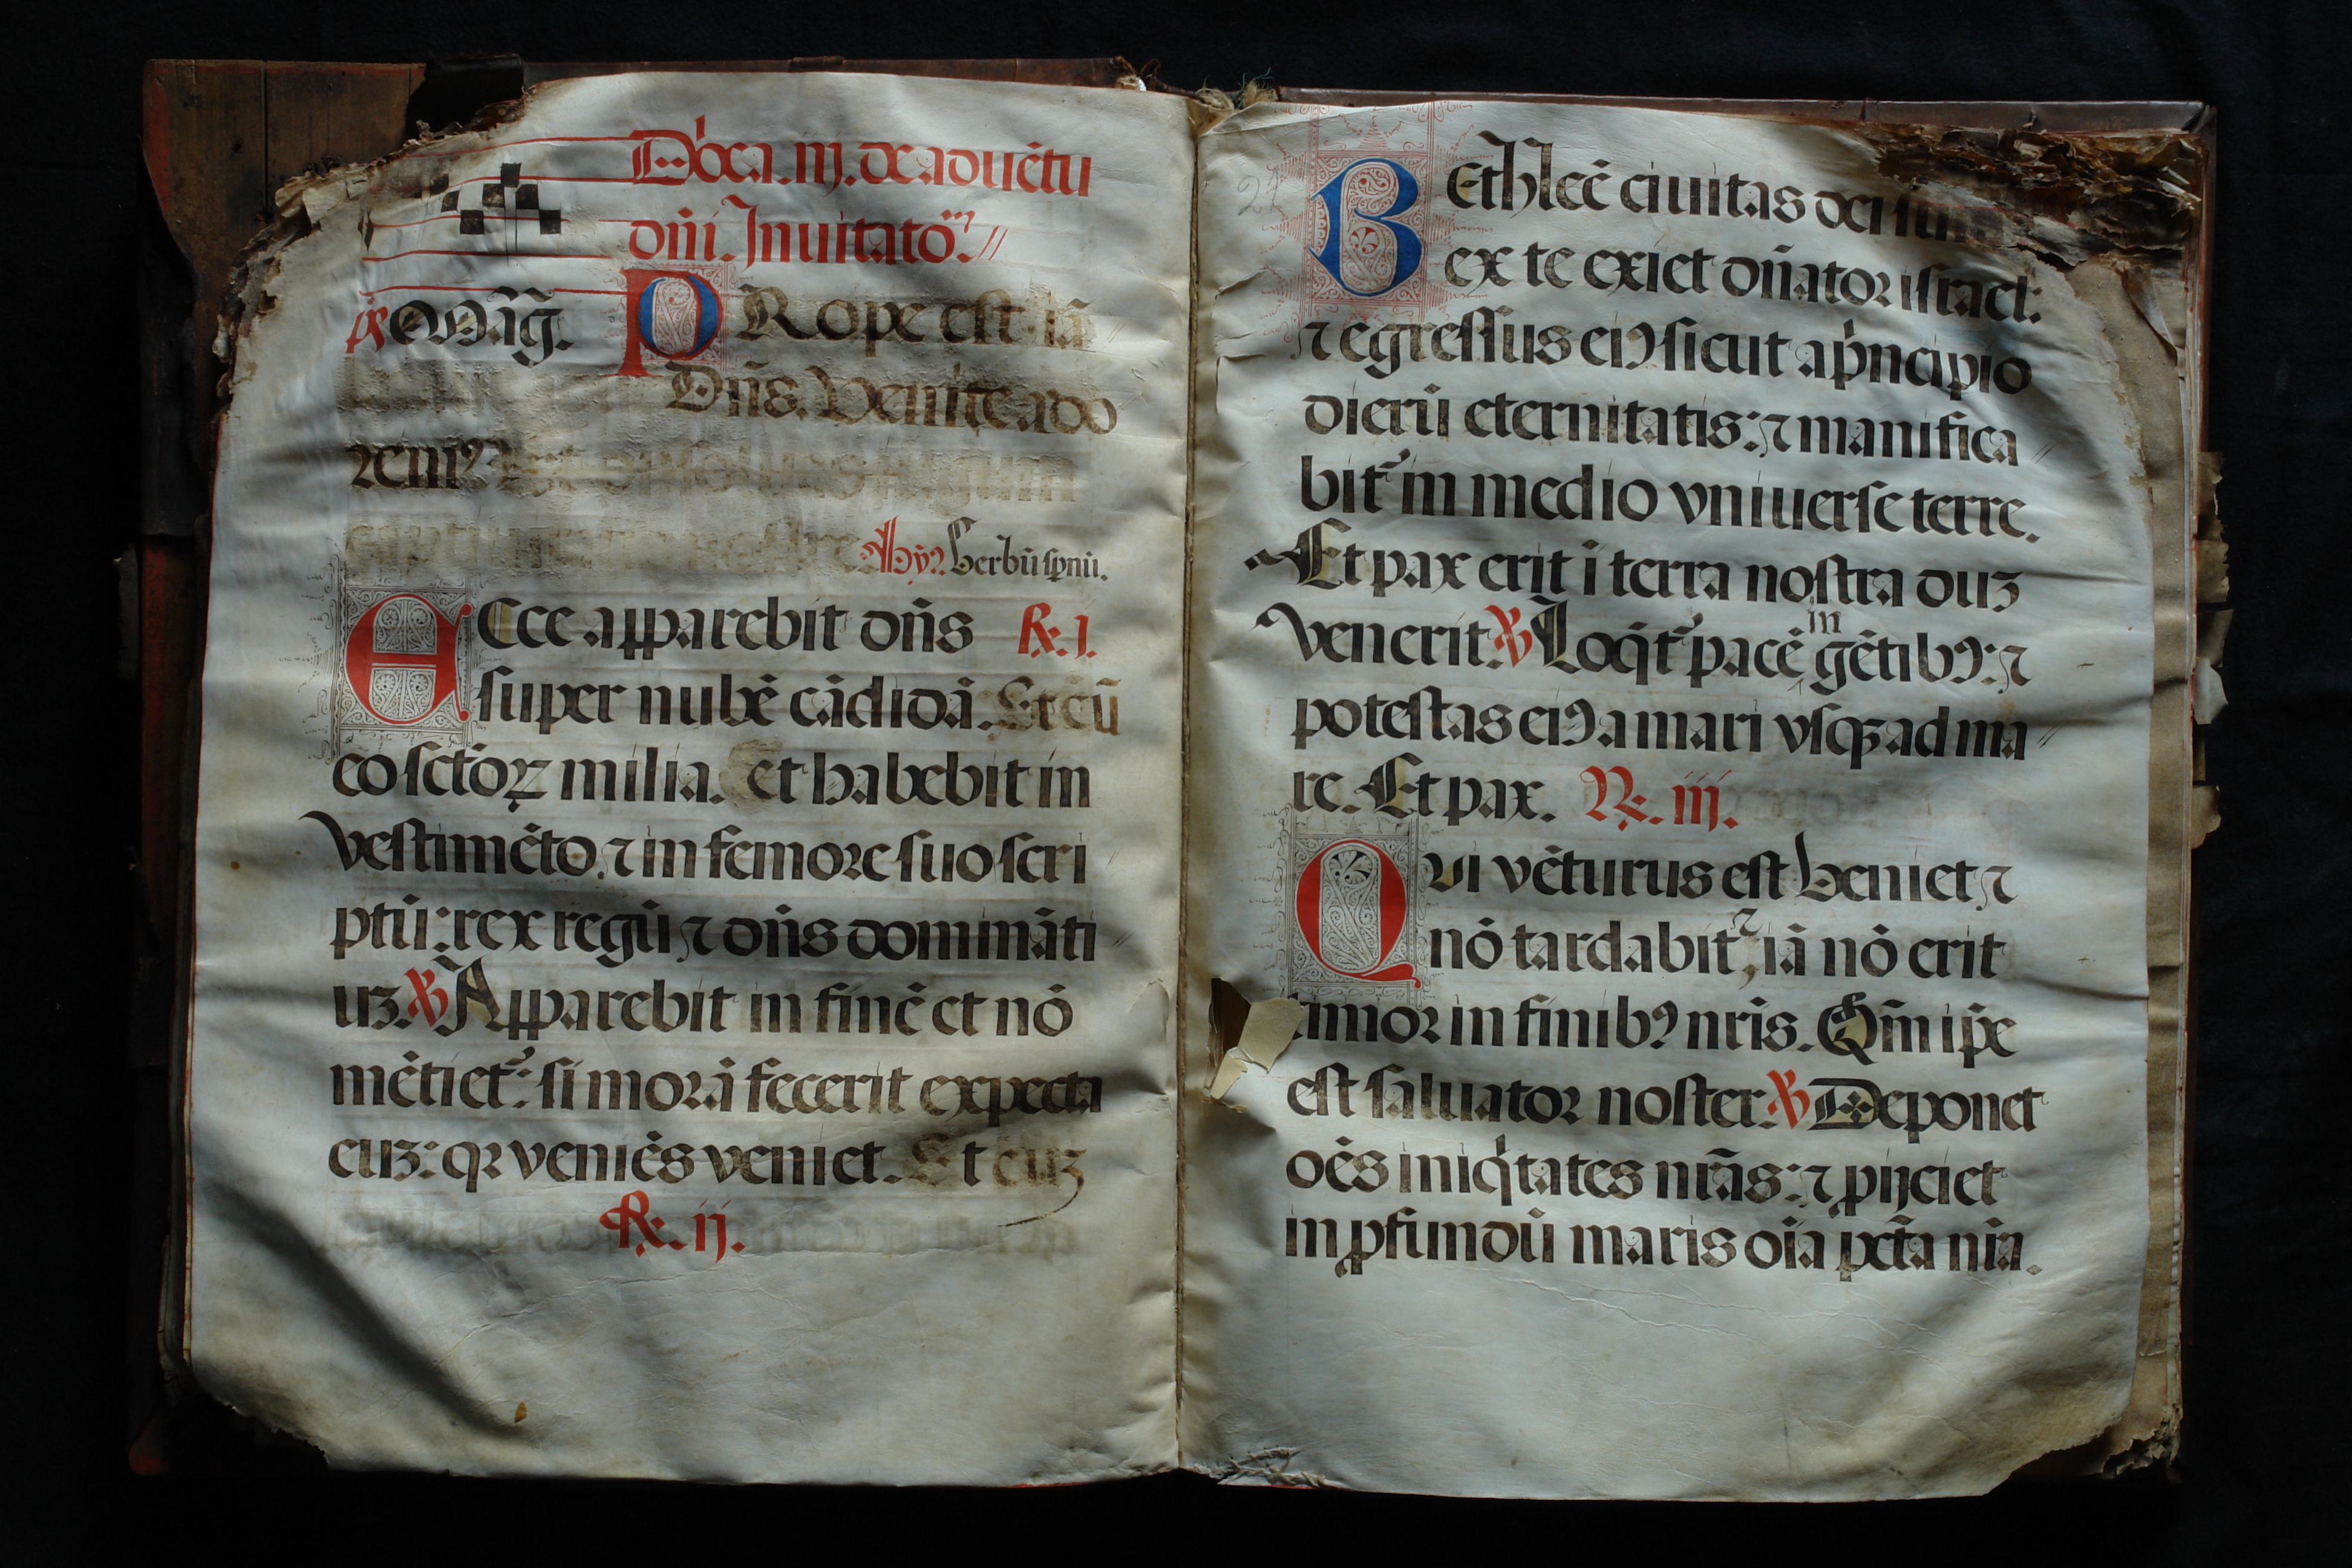 Dn̄ica. iij. de aduētu
dn̄i. Inuitato⁊.
Prope est iā
Dn̄s. Venite ado
remꝰ
Hy̅ꝰ Verbū sp̄nū.
Ecce apparebit dn̄s ℟. I.
super nubē cādidā. Et cū
eo sctōꝝ milia. et habebit in
vestimēto. ⁊ in femore suo scri
ptū: rex regū ⁊ dn̄s domināti
uꝫ. ℣ Apparebit in finē et nō
mētiet᷑: si morā fecerit expecta
euꝫ: qꝛ veniēs veniet. Et cuꝫ
℟. ij.
24
Bethleē ciuitas dei
ex te exiet dn̄ator israel:
⁊ egressus eiꝰ sicut a pͥncipio
dierū eternitatis: ⁊ manifica
bit᷑ in medio vniuerse terre.
Et pax erit ī terra nostra duꝫ
venerit. ℣ Loqͥt᷑ pacē in gētibꝰ: ⁊
potestas eiꝰ a mari vsqꝫ ad ma
re. Et pax. ℟. iij.
Qui vēturus est veniet ⁊
nō tardabit, iā nō erit
timor in finibꝰ nr̄is. Qm̄ ip̄e
est saluator noster ℣ Deponet
oēs iniqͥtates nr̄as: ⁊ ꝓijciet
in ꝓfundū maris oīa pctā nr̄a.